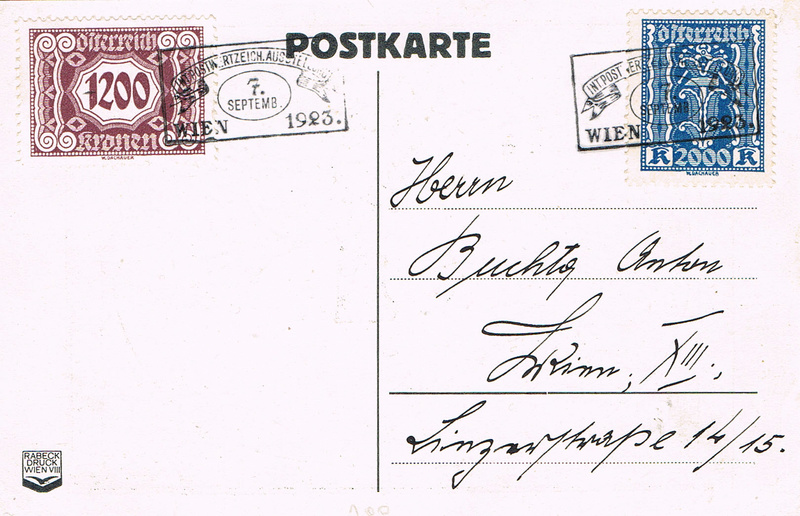 POSTKARTE
österreich
1200
kronen
W. DACHAUER
INT. POSTWERTZEICH. AUSSTELL.
7.
SEPTEMB.
WIEN 1923.
österreich
K 2000 K
W. DACHAUER
INT. POST
SEPTEMB.
WIEN 1923.
Herrn
Buchta Anton
Wien, XIII.,
Linzerstraße 14/15.
RABECK
DRUCK
WIEN VIII